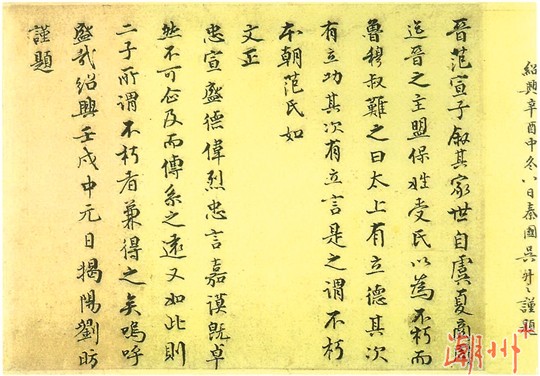 紹興辛酉中冬八日秦國吳謹題
晉范宣子叙其家世自虞夏商周
迄晉之主盟保姓受氏以為不朽而
魯穆叔難之曰太上有立德其次
有立功其次有立言是之謂不朽
本朝范氏如
文正
忠宣盛德偉烈忠言嘉謨既卓
然不可企及而傳系之遠又如此則
二子所謂不朽者兼得之矣嗚呼
盛哉紹興壬戌中元日揭陽劉昉
謹題
潮州+